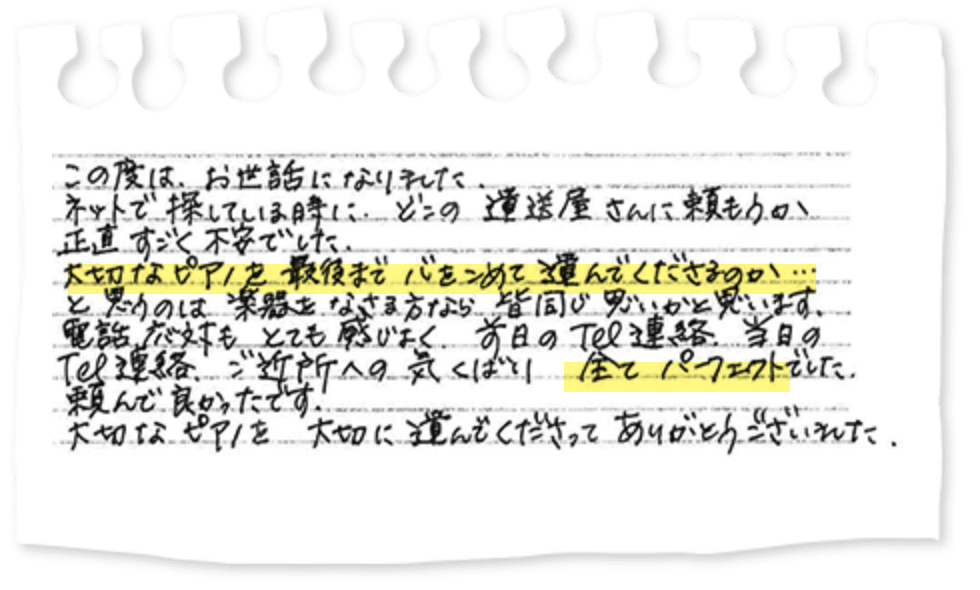 この度は、お世話になりました。
ネットで探している時に、どこの運送屋さんに頼もうか、
正直すごく不安でした。
大切なピアノを最後まで心をこめて運んでくださるのか…
と思うのは楽器をなさる方なら皆同じ思いかと思います。
電話応対もとても感じよく、前日のTel連絡、当日の
Tel連絡、ご近所への気くばり 全てパーフェクトでした。
頼んで良かったです。
大切なピアノを大切に運んでくださってありがとうございました。